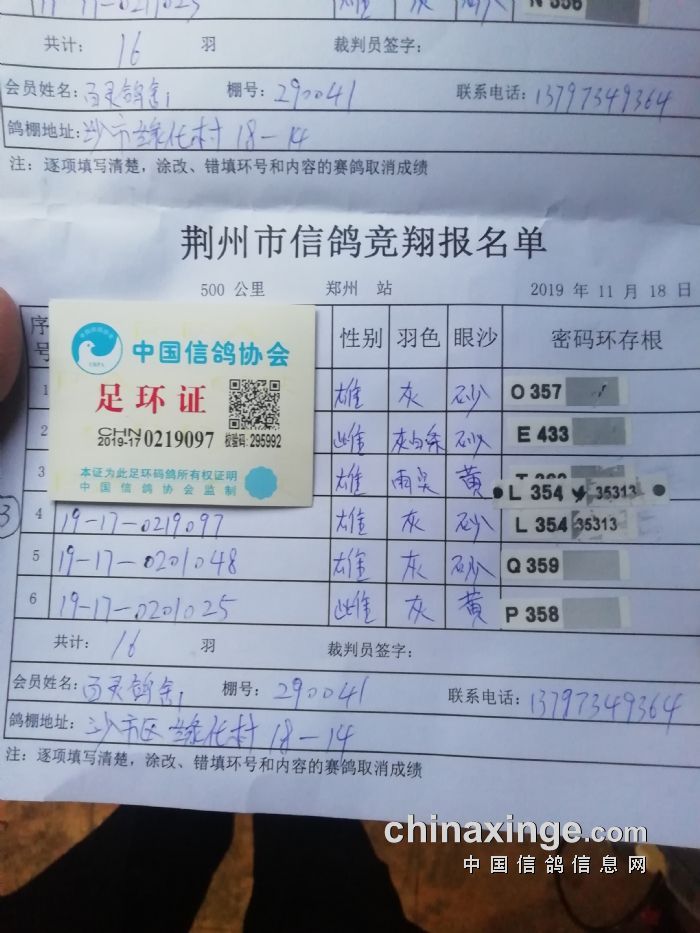 共计: 16 羽 裁判员签字:
会员姓名: 百灵鸽舍1 棚号: 290041 联系电话: 13797349364
鸽棚地址: 沙市 绿化村 18-14
注: 逐项填写清楚, 涂改、错填环号和内容的赛鸽取消成绩
荆州市信鸽竞翔报名单
500 公里 郑州 站 2019 年 11 月 18 日
序号 性别 羽色 眼沙 密码环存根
中国信鸽协会
足环证
CHN
2019-17 0219097 校验码: 295992
本证为此足环码鸽所有权证明
中国信鸽协会监制
1 雄 灰 砂 O 357
2 雌 灰白条 砂 E 433
3 雄 雨点 黄
L 354 35313
4 19-17-0219097 雄 灰 砂 L 354 35313
5 19-17-0201048 雄 灰 砂 Q 359
6 19-17-0201025 雌 灰 黄 P 358
共计: 16 羽 裁判员签字:
会员姓名: 百灵鸽舍1 棚号: 290041 联系电话: 13797349364
鸽棚地址: 沙市区 绿化村 18-14
注: 逐项填写清楚, 涂改、错填环号和内容的赛鸽取消成绩
chinaxinge.com
中国信鸽信息网